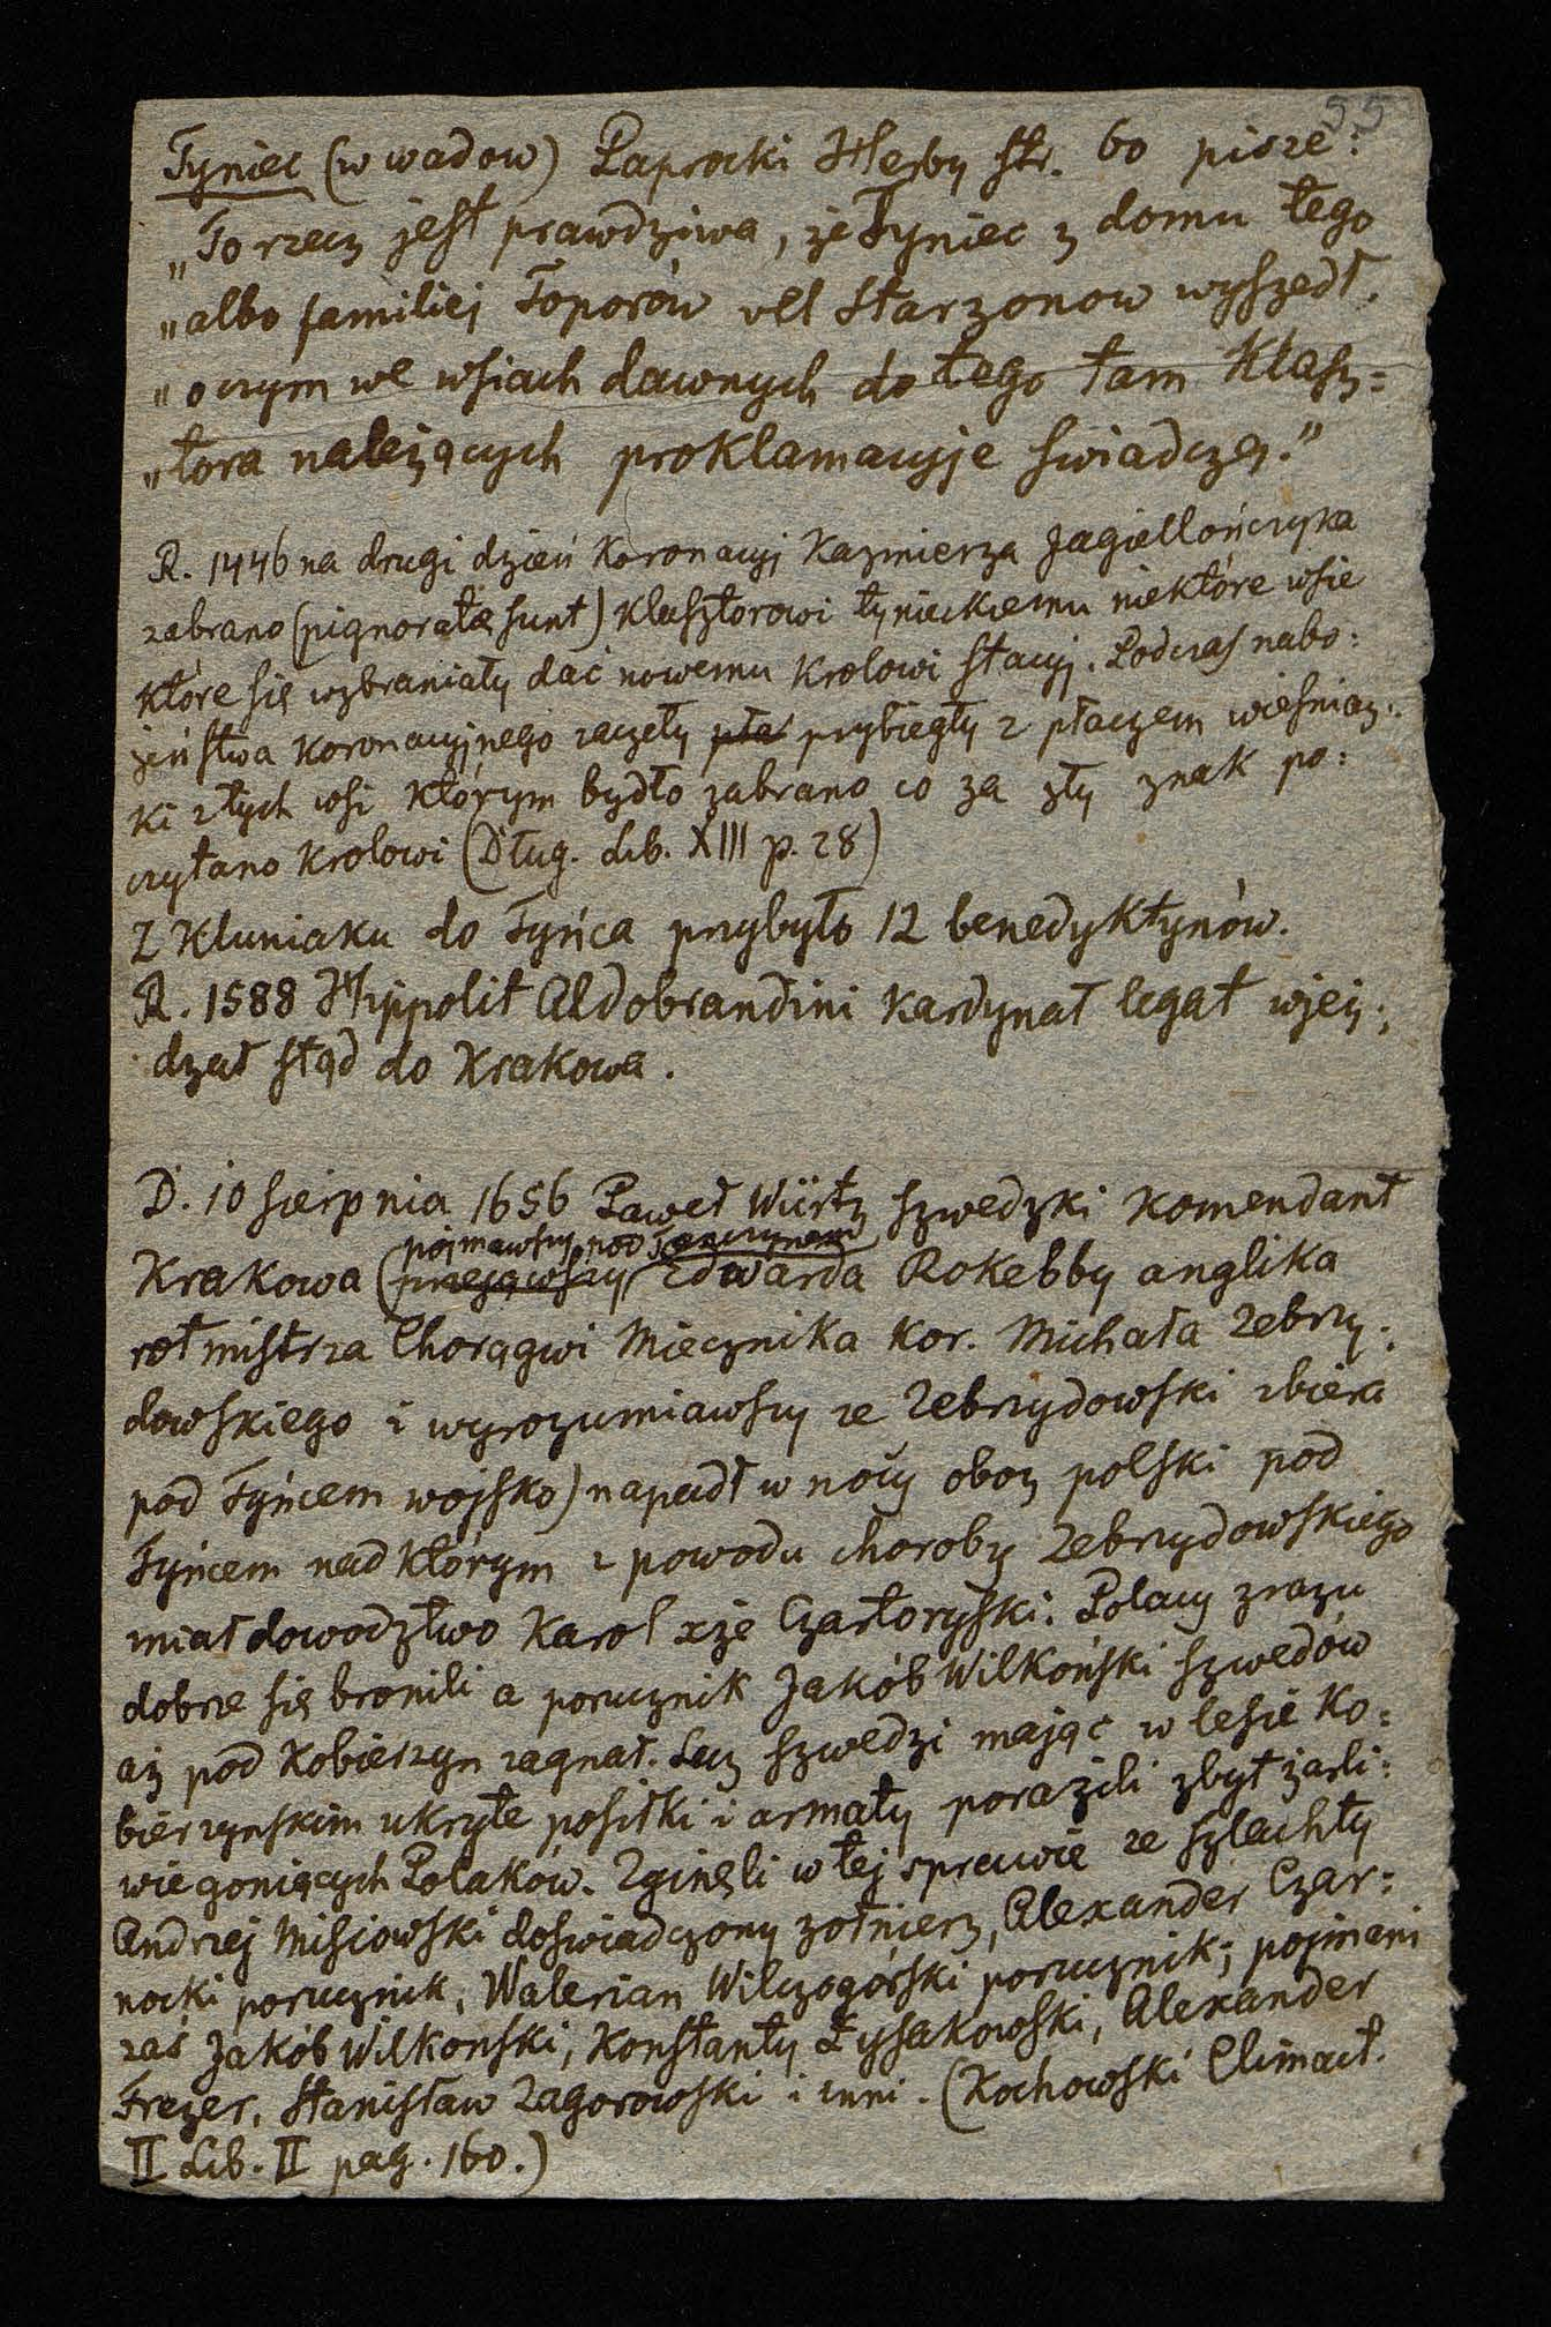 55
Tyniec (w wadow) Paprocki Herby str. 60 pisze:
„To rzecz jest prawdziwa, że Tyniec z domu tego
„albo familiej Toporów vel Starzonow wyszedł,
„o czym we wsiach dawnych do tego tam klasz=
„tora należących proklamacyje świadczą."
R. 1446 na drugi dzień koronacyj Kazmierza Jagiellończyka
zabrano (pignoratæ sunt) klasztorowi tynieckiemu niektóre wsie
które się wzbraniały dać nowemu krolowi stacyj. Podczas nabo:
żeństwa koronacyjnego zaczęły pła przybiegły z płaczem wieśniacz:
ki z tych wsi którym bydło zabrano co za zły znak po:
czytano krolowi (Dług. Lib. XIII p. 28)
Z Kluniaku do Tyńca przybyło 12 benedyktynów.
R. 1588 Hyppolit Aldobrandini kardynał legat wjeż:
dżał stąd do Krakowa.
D. 10 sierpnia 1656 Paweł Würtz szwedzki komendant
pojmawszy pod Tenczynem
Krakowa (przejąwszy Edwarda Rokebby anglika
rotmistrza Chorągwi Miecznika kor. Michała Zebrzy:
dowskiego i wyrozumiawszy ze Zebrzydowski zbiera
pod Tyńcem wojsko) napadł w nocy oboz polski pod
Tyńcem nad którym z powodu choroby Zebrzydowskiego
miał dowodztwo Karol xże Czartoryski. Polacy zrazu
dobrze się bronili a porucznik Jakób Wilkoński szwedów
aż pod Kobierzyn zagnał. Lecz szwedzi mając w lesie Ko:
bierzynskim ukryte posiłki i armaty porazili zbyt żarli:
wie goniących Polaków. Zginęli w tej sprawie ze szlachty
Andrzej Misiowski doswiadczony zołnierz, Alexander Czar:
nocki porucznik, Walerian Wilczogórski porucznik; pojmani
zaś Jakób Wilkonski, Konstanty Łysakowski, Alexander
Frezer, Stanisław Zagorowski i inni. (Kochowski Climact.
II Lib. II pag. 160.)